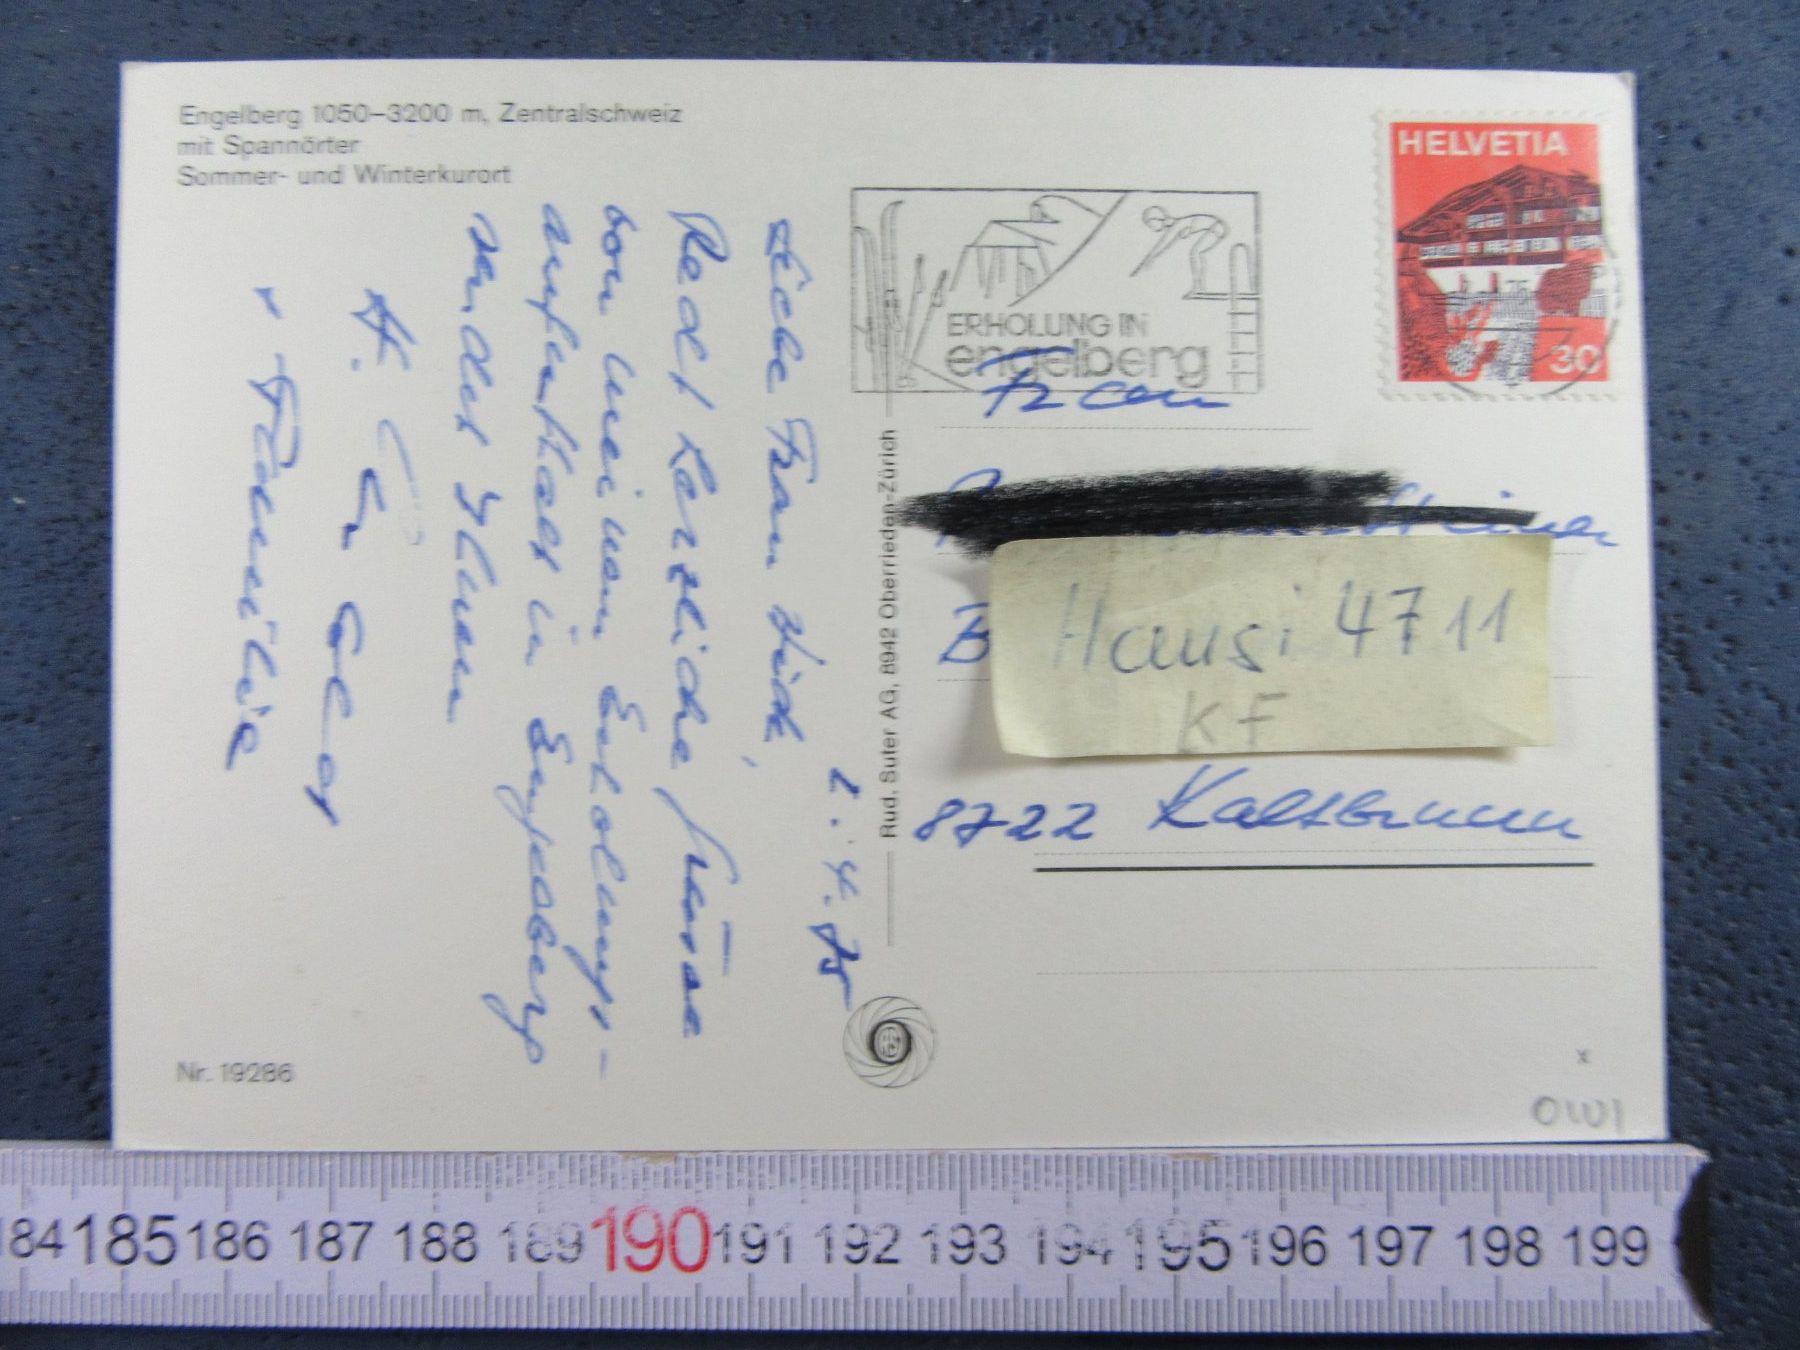 Engelberg 1050–3200 m, Zentralschweiz
mit Spannörter
Sommer- und Winterkurort
2.4.75
Liebe Frau
Recht herzliche Grüsse
von meinem Erholungs-
aufenthalt in Engelberg
sendet Ihnen
H.
+ Familie
Nr. 19286
Rud. Suter AG, 8942 Oberrieden-Zürich
ERHOLUNG IN
engelberg
HELVETIA
30
Frau
B
Hausi 4711
KF
8722 Kaltbrunn
x
OW1
184 185 186 187 188 189 190 191 192 193 194 195 196 197 198 199